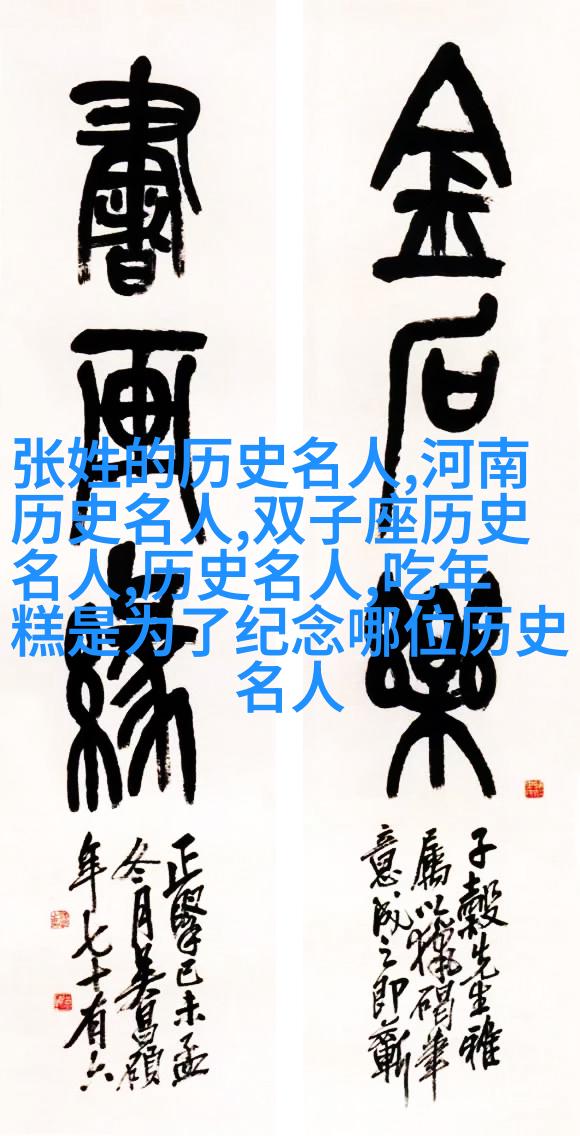 张姓的历史名人,河南
历史名人,双子座历史
名人,历史名人,吃年
糕是为了纪念哪位历史
名人
金石樂
子穀先生雅
屬以獵碣筆
意成之即蘄
書画緣
正 己未孟
冬月吴昌碩
年七十有六